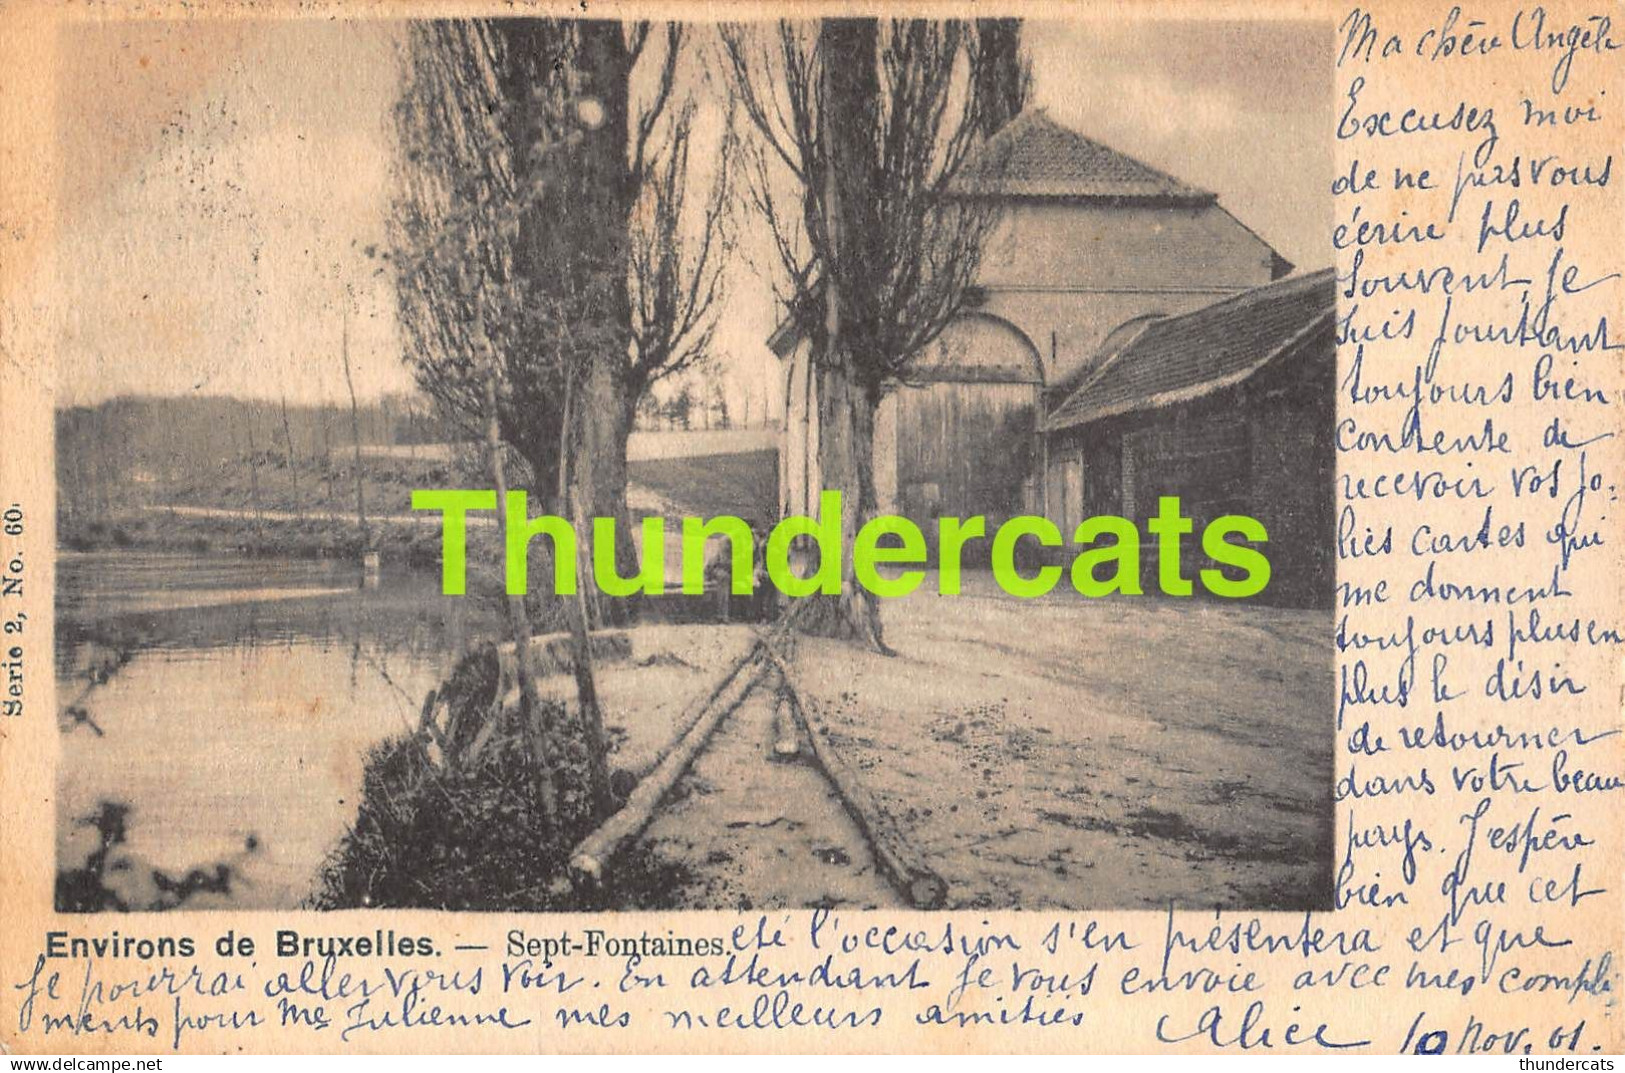 Ma chère Angèle
Excusez moi
de ne pas vous
écrire plus
souvent, je
suis pourtant
toujours bien
contente de
recevoir vos jo-
lies cartes qui
me donnent
toujours plus en
plus le désir
de retourner
dans votre beau
pays. J'espère
bien que cet
été l'occasion s'en présentera et que
je pourrai aller vous voir. En attendant je vous envoie avec mes compli-
ments pour Me Julienne mes meilleurs amitiés
Alice 10 Nov. 01.
Thundercats
Environs de Bruxelles. — Sept-Fontaines.
Serie 2, No. 60.
thundercats